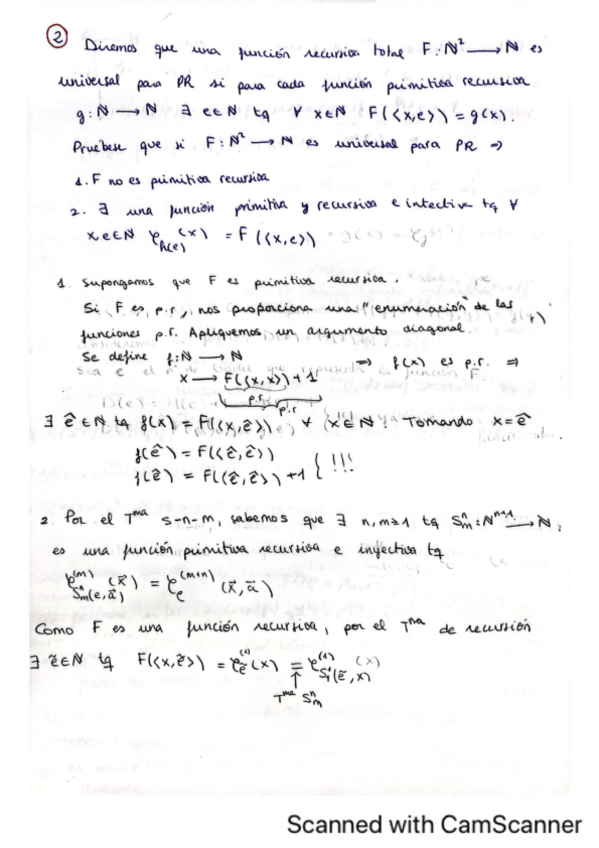 2
Diremos que una función recursiva total F: ℕ² ⟶ ℕ es
universal para PR si para cada función primitiva recursiva
g: ℕ ⟶ ℕ ∃ e∈ℕ tq ∀ x∈ℕ F(⟨x,e⟩) = g(x).
Pruebese que si F: ℕ² ⟶ ℕ es universal para PR ⇒
1. F no es primitiva recursiva
2. ∃ una función primitiva y recursiva e inyectiva tq ∀
x,e∈ℕ φ_{h(e)}(x) = F(⟨x,e⟩)
1. Supongamos que F es primitiva recursiva.
Si F es p.r., nos proporciona una "enumeración" de las
funciones p.r. Apliquemos un argumento diagonal.
Se define f: ℕ ⟶ ℕ ⇒ f(x) es p.r. ⇒
x ⟶ F(⟨x,x⟩)+1
p.r.
p.r
∃ ê∈ℕ tq f(x) = F(⟨x,ê⟩) ∀ x∈ℕ. Tomando x=ê
f(ê) = F(⟨ê,ê⟩)
f(ê) = F(⟨ê,ê⟩)+1 { !!!
2. Por el Tma s-n-m, sabemos que ∃ n,m≥1 tq S^n_m: ℕ^{n+1} ⟶ ℕ,
es una función primitiva recursiva e inyectiva tq
φ^{(m)}_{S^n_m(e,a⃗)}(x⃗) = φ^{(m+n)}_e (x⃗,a⃗)
Como F es una función recursiva, por el Tma de recursión
∃ ẽ∈ℕ tq F(⟨x,ẽ⟩) = φ^{(1)}_ẽ(x) = φ^{(1)}_{S^1_1(ẽ,x)}(x)
↑
Tma S^n_m
Scanned with CamScanner